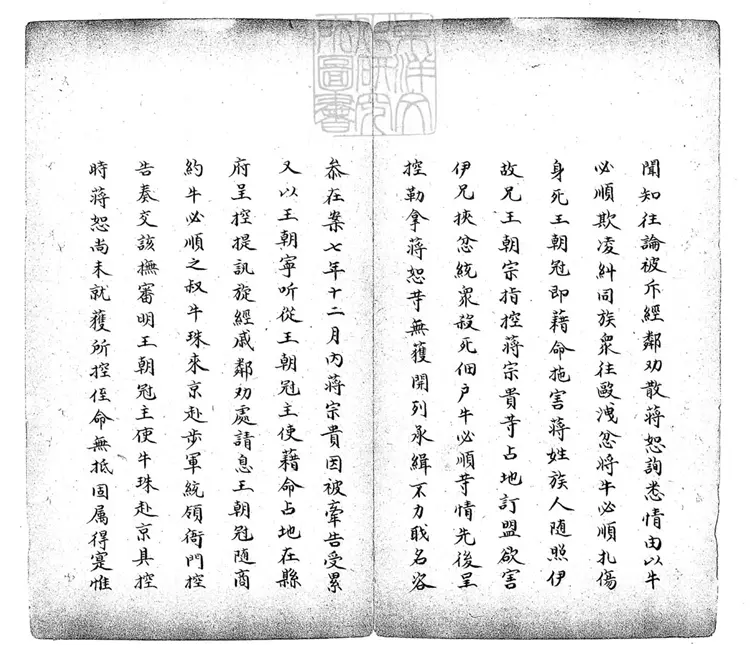 東洋文
化研究
所圖書
聞知往論被斥經鄰劝散蔣恕詢悉情由以牛
必順欺凌糾同族衆往毆洩忿將牛必順扎傷
身死王朝冠即藉命拖害蔣姓族人随照伊
故兄王朝宗指控蔣宗貴等占地訂盟欲害
伊兄挾忿統衆殺死佃户牛必順等情先後呈
控勒拿蔣恕等無獲開列承緝不力职名咨
叅在案七年十二月內蔣宗貴因被牽告受累
又以王朝寧听從王朝冠主使藉命占地在縣
府呈控提訊旋經戚鄰劝處請息王朝冠随商
約牛必順之叔牛珠來京赴步軍統領衙門控
告奏交該撫審明王朝冠主使牛珠赴京具控
時蔣恕尚未就獲所控侄命無抵固属得寔惟